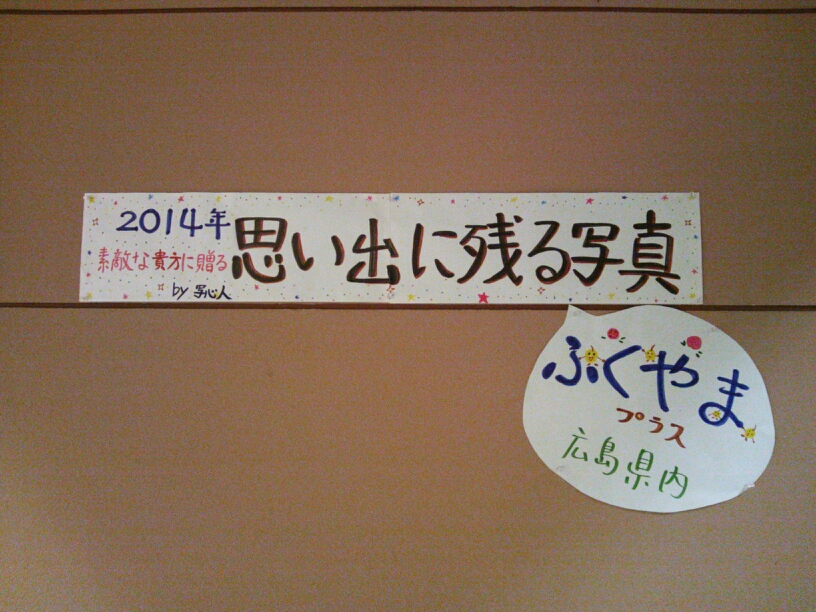 2014年
素敵な貴方に贈る
by 写心人
思い出に残る写真
ふくやま
プラス
広島県内